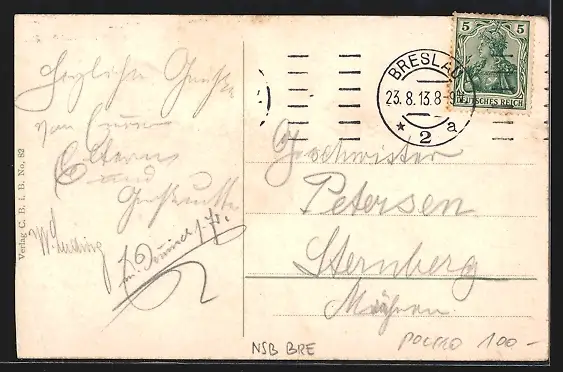 Herzliche Grüsse
von Euren
Eltern
und
Grossmutter
Verlag C. B. i. B. No. 82
BRESLAU
23.8.13.8-9
* 2 a
5 5
DEUTSCHES REICH
Geschwister
Petersen
Sternberg
Mähren
NSB BRE
100-